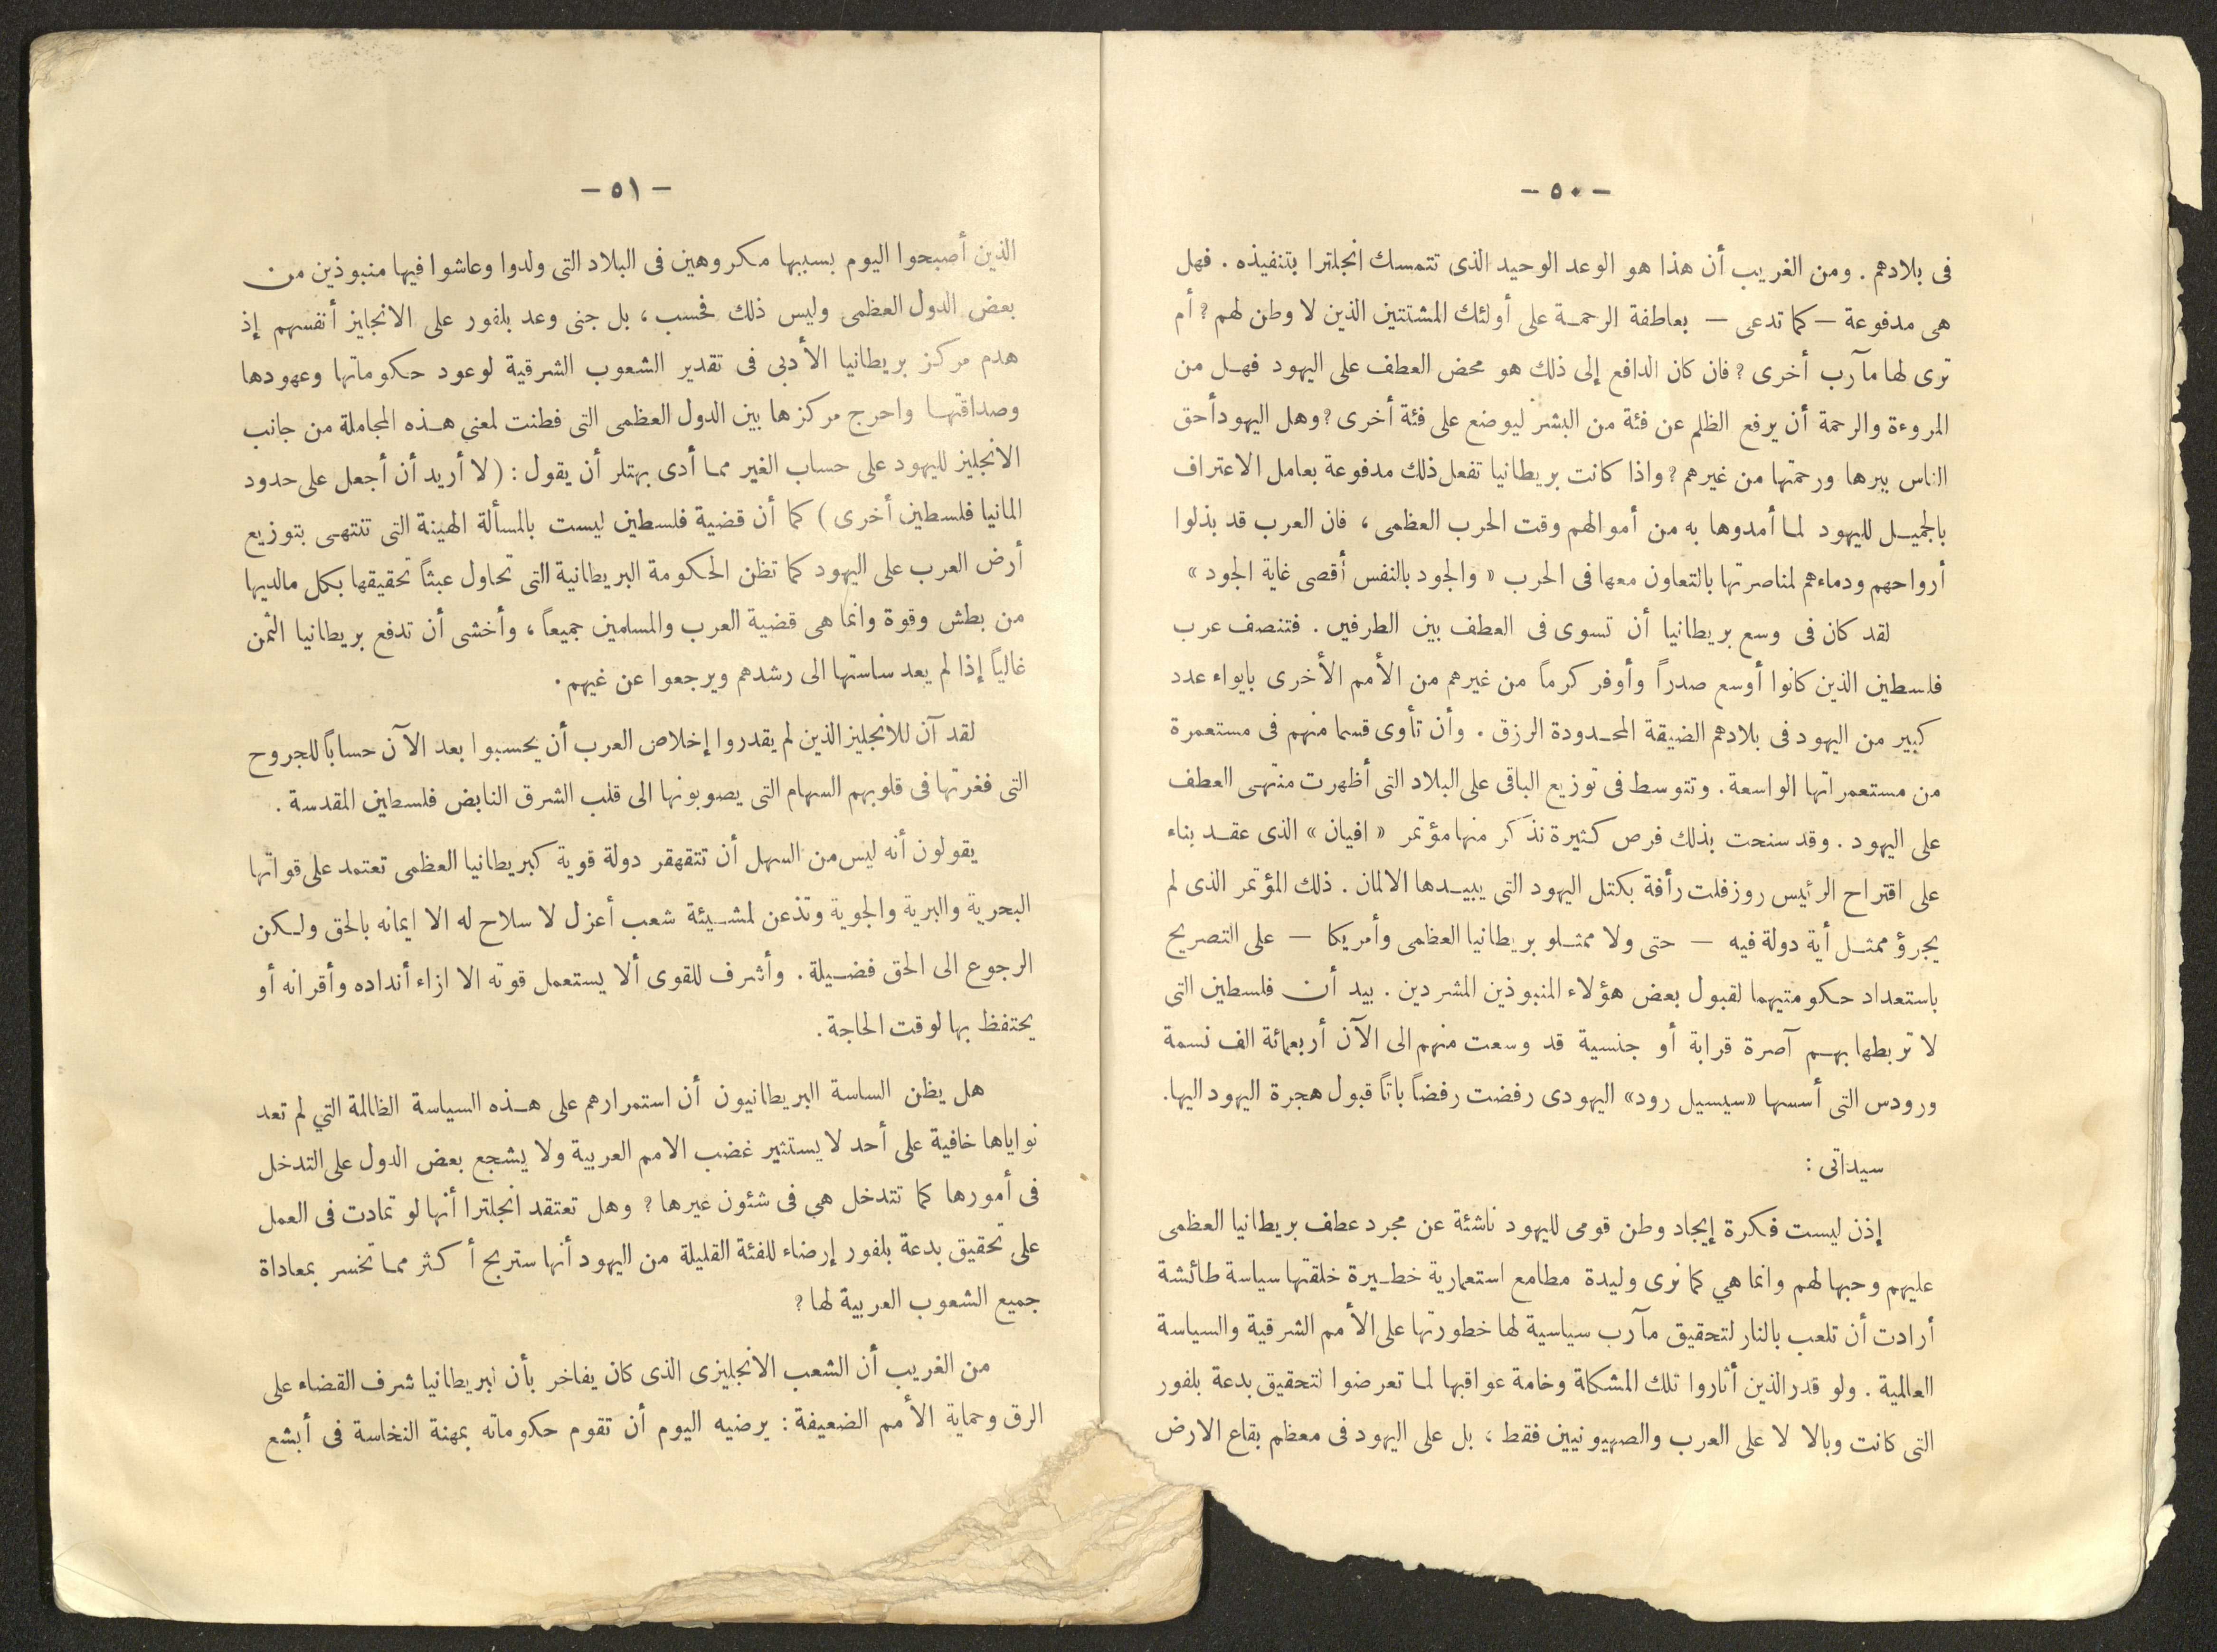 — ٥٠ —
فى بلادهم . ومن الغريب أن هذا هو الوعد الوحيد الذى تتمسك انجلترا بتنفيذه . فهل
هى مدفوعة — كما تدعى — بعاطفة الرحمة على أولئك المشتتين الذين لا وطن لهم ؟ أم
ترى لها مآرب أخرى ؟ فان كان الدافع إلى ذلك هو محض العطف على اليهود فهل من
المروءة والرحمة أن يرفع الظلم عن فئة من البشر ليوضع على فئة أخرى ؟ وهل اليهود أحق
الناس ببرها ورحمتها من غيرهم ؟ واذا كانت بريطانيا تفعل ذلك مدفوعة بعامل الاعتراف
بالجميل لليهود لما أمدوها به من أموالهم وقت الحرب العظمى ، فان العرب قد بذلوا
أرواحهم ودماءهم لمناصرتها بالتعاون معها فى الحرب « والجود بالنفس أقصى غاية الجود »
لقد كان فى وسع بريطانيا أن تسوى فى العطف بين الطرفين . فتنصف عرب
فلسطين الذين كانوا أوسع صدراً وأوفر كرماً من غيرهم من الأمم الأخرى بايواء عدد
كبير من اليهود فى بلادهم الضيقة المحدودة الرزق . وأن تأوى قسما منهم فى مستعمرة
من مستعمراتها الواسعة . وتتوسط فى توزيع الباقى على البلاد التى أظهرت منتهى العطف
على اليهود . وقد سنحت بذلك فرص كثيرة نذكر منها مؤتمر « افيان » الذى عقد بناء
على اقتراح الرئيس روزفلت رأفة بكتل اليهود التى يبيدها الالمان . ذلك المؤتمر الذى لم
يجرؤ ممثل أية دولة فيه — حتى ولا ممثلو بريطانيا العظمى وأمريكا — على التصريح
باستعداد حكومتيهما لقبول بعض هؤلاء المنبوذين المشردين . بيد أن فلسطين التى
لا تربطها بهم آصرة قرابة أو جنسية قد وسعت منهم الى الآن أربعمائة الف نسمة
ورودس التى أسسها «سيسيل رود» اليهودى رفضت رفضاً باتاً قبول هجرة اليهود اليها.
سيداتى :
إذن ليست فكرة إيجاد وطن قومى لليهود ناشئة عن مجرد عطف بريطانيا العظمى
عليهم وحبها لهم وانما هي كما نرى وليدة مطامع استعمارية خطيرة خلقتها سياسة طائشة
أرادت أن تلعب بالنار لتحقيق مآرب سياسية لها خطورتها على الأمم الشرقية والسياسة
العالمية . ولو قدر الذين أثاروا تلك المشكلة وخامة عواقبها لما تعرضوا لتحقيق بدعة بلفور
التى كانت وبالا لا على العرب والصهيونيين فقط ، بل على اليهود فى معظم بقاع الارض
— ٥١ —
الذين أصبحوا اليوم بسببها مكروهين فى البلاد التى ولدوا وعاشوا فيها منبوذين من
بعض الدول العظمى وليس ذلك فحسب ، بل جنى وعد بلفور على الانجليز أنفسهم إذ
هدم مركز بريطانيا الأدبى فى تقدير الشعوب الشرقية لوعود حكوماتها وعهودها
وصداقتها واحرج مركزها بين الدول العظمى التى فطنت لمعني هذه المجاملة من جانب
الانجليز لليهود على حساب الغير مما أدى بهتلر أن يقول : ( لا أريد أن أجعل على حدود
المانيا فلسطين أخرى ) كما أن قضية فلسطين ليست بالمسألة الهينة التى تنتهى بتوزيع
أرض العرب على اليهود كما تظن الحكومة البريطانية التى تحاول عبثاً تحقيقها بكل مالديها
من بطش وقوة وانما هى قضية العرب والمسلمين جميعاً ، وأخشى أن تدفع بريطانيا الثمن
غالياً إذا لم يعد ساستها الى رشدهم ويرجعوا عن غيهم .
لقد آن للانجليز الذين لم يقدروا إخلاص العرب أن يحسبوا بعد الآن حساباً للجروح
التى فغرتها فى قلوبهم السهام التى يصوبونها الى قلب الشرق النابض فلسطين المقدسة .
يقولون أنه ليس من السهل أن تتقهقر دولة قوية كبريطانيا العظمى تعتمد على قواتها
البحرية والبرية والجوية وتذعن لمشيئة شعب أعزل لا سلاح له الا ايمانه بالحق ولكن
الرجوع الى الحق فضيلة . وأشرف للقوى ألا يستعمل قوته الا ازاء أنداده وأقرانه أو
يحتفظ بها لوقت الحاجة .
هل يظن الساسة البريطانيون أن استمرارهم على هذه السياسة الظالمة التي لم تعد
نواياها خافية على أحد لا يستثير غضب الامم العربية ولا يشجع بعض الدول على التدخل
فى أمورها كما تتدخل هى فى شئون غيرها ؟ وهل تعتقد انجلترا أنها لو تمادت فى العمل
على تحقيق بدعة بلفور إرضاء للفئة القليلة من اليهود أنها ستربح أكثر مما تخسر بمعاداة
جميع الشعوب العربية لها ؟
من الغريب أن الشعب الانجليزى الذى كان يفاخر بأن لبريطانيا شرف القضاء على
الرق وحماية الأمم الضعيفة : يرضيه اليوم أن تقوم حكوماته بمهنة النخاسة فى أبشع